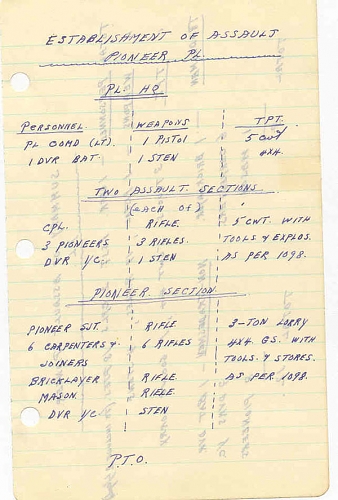 ESTABLISHMENT OF ASSAULT
PIONEER PL
PL HQ
PERSONNEL. WEAPONS TPT.
PL COMD (LT). 1 PISTOL 5 CWT
1 DVR BAT. 1 STEN 4X4.
TWO ASSAULT SECTIONS
(EACH OF)
CPL. RIFLE. 5 CWT. WITH
3 PIONEERS 3 RIFLES. TOOLS & EXPLOS.
DVR I/C. 1 STEN AS PER 1098.
PIONEER SECTION
PIONEER SJT. RIFLE 3-TON LORRY
6 CARPENTERS & 6 RIFLES 4X4 GS. WITH
JOINERS TOOLS & STORES.
BRICKLAYER RIFLE. AS PER 1098.
MASON. RIFLE
DVR I/C. STEN
P.T.O.